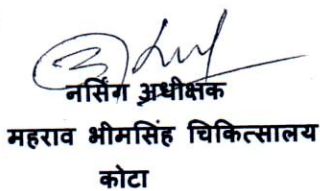 नर्सिंग अधीक्षक
महराव भीमसिंह चिकित्सालय
कोटा